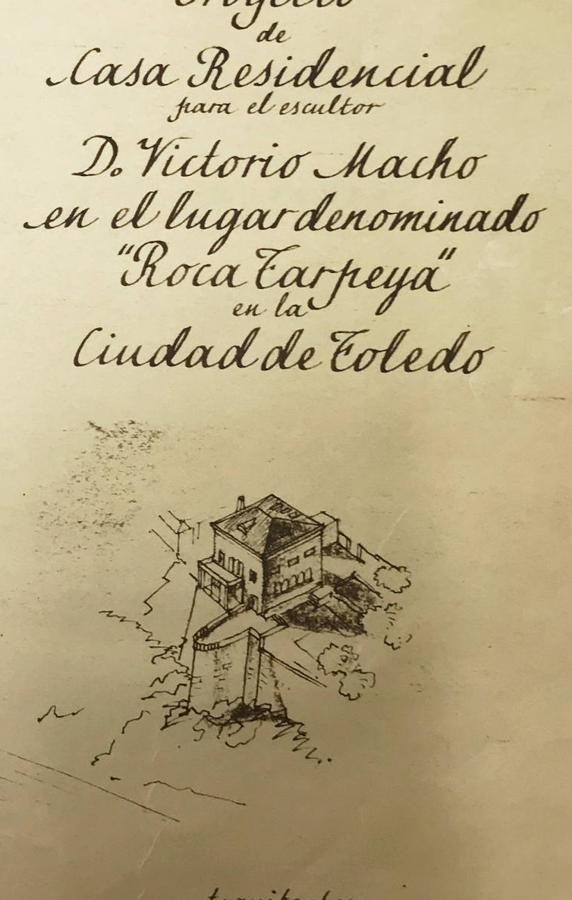 Proyecto
de
Casa Residencial
para el escultor
D. Victorio Macho
en el lugar denominado
"Roca Tarpeya"
en la
Ciudad de Toledo